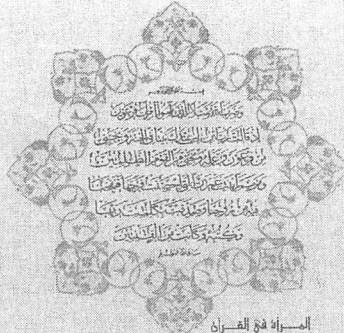 بسم الله الرحمن الرحيم
وضرب الله مثلا للذين آمنوا امرأت فرعون
إذ قالت رب ابن لي عندك بيتا في الجنة ونجني
من فرعون وعمله ونجني من القوم الظالمين
ومريم ابنت عمران التي أحصنت فرجها فنفخنا
فيه من روحنا وصدقت بكلمات ربها
وكتبه وكانت من القانتين
صدق الله العظيم
المرأة في القرآن